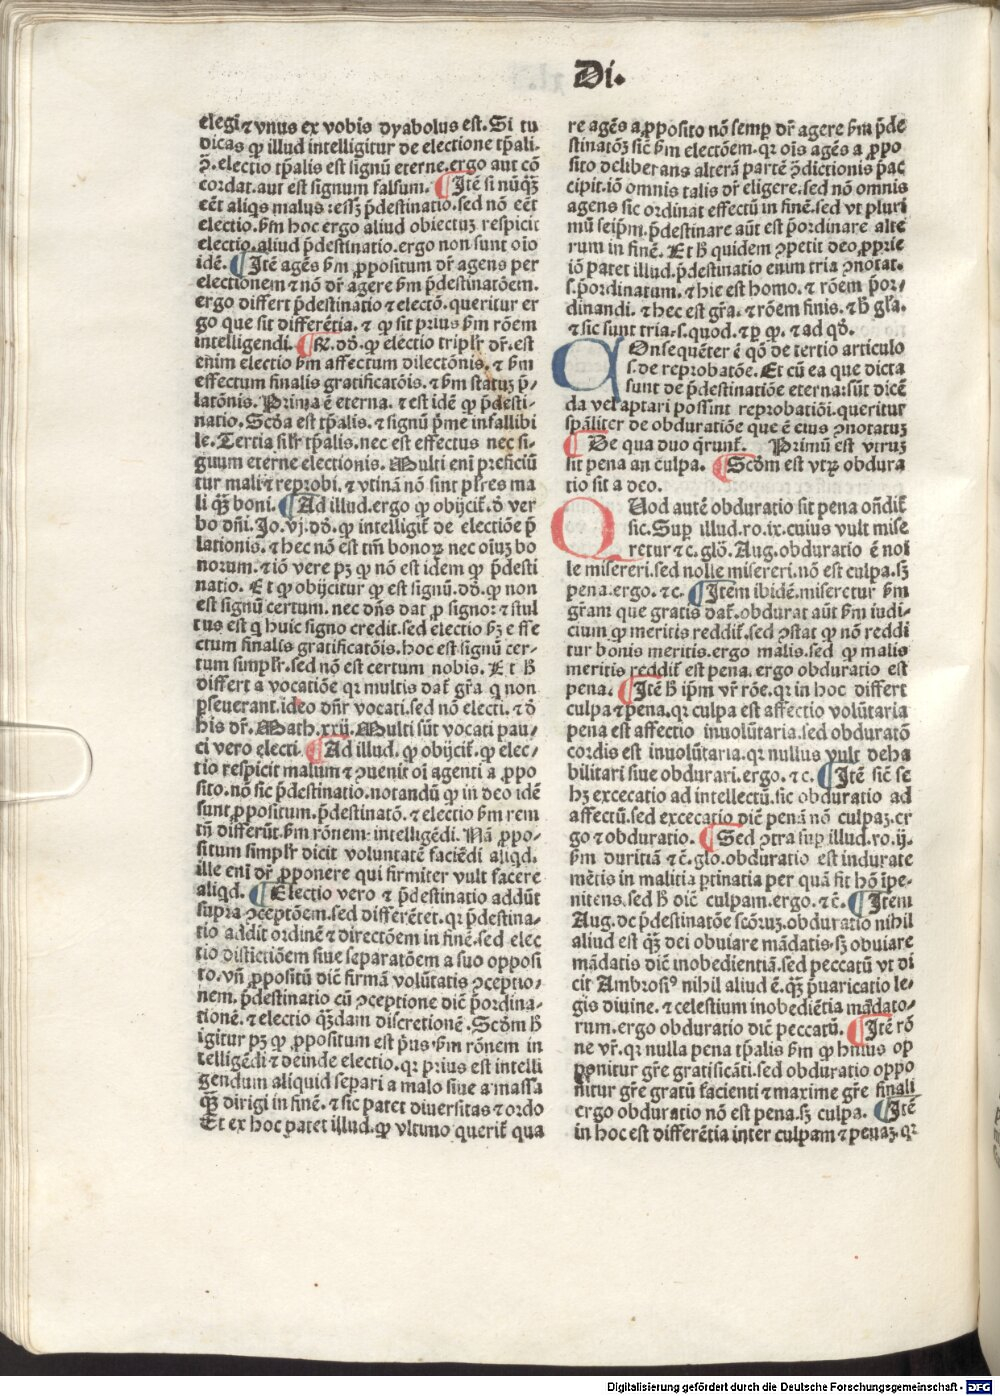 Di.
elegi ⁊ vnus ex vobis dyabolus est. Si tu
dicas ꝙ illud intelligitur de electione tꝑali-
ꝯ̃. electio tꝑalis est signũ eterne. ergo aut cõ
cordat. aut est signum falsum. ¶ Jtẽ si nũꝗ̃
eẽt aliqͥs malus: essꝫ p̃destinatio. sed nõ eẽt
electio. ẜm hoc ergo aliud obiectuꝫ respicit
electio. aliud p̃destinatio. ergo non sunt oĩo
idẽ. ¶ Jtẽ agẽs ẜm ꝓpositum dr̃ agens per
electionem ⁊ nõ dr̃ agere ẜm p̃destinatõem.
ergo differt p̃destinatio ⁊ electõ. queritur er
go que sit differẽtia. ⁊ ꝙ sit prius ẜm rõem
intelligendi. ¶ ℞. dõ. ꝙ electio triplr̃ dr̃. est
enim electio ẜm affectum dilectõnis. ⁊ ẜm
effectum finalis gratificatõis. ⁊ ẜm statuꝫ p̃-
latõnis. Prima ẽ eterna. ⁊ est idẽ ꝙ p̃desti-
natio. Scd̃a est tꝑalis. ⁊ signũ p̃me infallibi
le. Tertia silr̃ tꝑalis. nec est effectus nec si-
gnum eterne electionis. Multi eni p̃eficiũ
tur mali ⁊ reprobi. ⁊ vtinã nõ sint plr̃es ma
li ꝗ̃ boni. ¶ Ad illud. ergo ꝙ obijcit̃. d̃ ver
bo dñi. Jo. vj. dõ. ꝙ intelligit̃ de electiõe p̃
lationis. ⁊ hec nõ est tm̃ bonoꝝ nec oĩuꝫ bo
norum. ⁊ iõ vere pꝫ ꝙ nõ est idem ꝙ p̃desti
natio. Et ꝙ obijcitur ꝙ est signũ. dõ. ꝙ non
est signũ certum. nec dñs dat ꝑ signo: ⁊ stul
tus est q̃ huic signo credit. sed electio ẜꝫ e ffe
ctum finalis gratificatõis. hoc est signũ cer-
tum simplr̃. sed nõ est certum nobis. Et h̃
differt a vocatiõe qꝛ multis dat̃ gr̃a q̃ non
ꝑseuerant. ideo dñr vocati. sed nõ electi. ⁊ d̃
his dr̃. Math. xxij. Multi sũt vocati pau/
ci vero electi. ¶ Ad illud. ꝙ obijcit̃. ꝙ elec/
tio respicit malum ⁊ ꝯuenit oĩ agenti a ꝓpo
sito. nõ sic p̃destinatio. notandũ ꝙ in deo idẽ
sunt ꝓpositum. p̃destinatõ. ⁊ electio ẜm rem
tñ differũt. ẜm rõnem: intelligẽdi. Nã ꝓpo-
situm simplr̃ dicit voluntatẽ faciẽdi aliqd̃.
ille eni dr̃ ꝓponere qui firmiter vult facere
aliqd̃. ¶ Electio vero ⁊ p̃destinatio addũt
supra ꝯceptõem. sed differẽtet. qꝛ p̃destina-
tio addit ordinẽ ⁊ directõem in finẽ. sed elec
tio distictiõem siue separatõem a suo opposi
to. vñ ꝓpositũ dic̃ firmã volũtatis ꝯceptio-
nem. p̃destinatio cũ ꝯceptione dic̃ p̃ordina-
tionẽ. ⁊ electio ꝗ̃dam discretionẽ. Scd̃m h̃
igitur pꝫ ꝙ ꝓpositum est p̃us ẜm rõnem in
telligẽdi ⁊ deinde electio. qꝛ prius est intelli
gendum aliquid separi a malo siue a massa
ꝗ̃ dirigi in finẽ. ⁊ sic patet diuersitas ⁊ ordo
Et ex hoc patet illud. ꝙ vltimo querit̃ qua
re agẽs a ꝓposito nõ semꝑ dr̃ agere ẜm p̃de
stinatõꝫ sic̃ ẜm electõem. qꝛ oĩs agẽs a ꝓpo
sito deliberans alterã partẽ ꝯ̃dictionis p̃ac
cipit. iõ omnis talis dr̃ eligere. sed nõ omnis
agens sic ordinat effectũ in finẽ. sed vt pluri
mũ seip̃m. p̃destinare aũt est p̃ordinare alte
rum in finẽ. Et h̃ quidem ꝯpetit deo ꝓprie
iõ patet illud. p̃destinatio enim tria ꝯnotat.
s. p̃ordinatum. ⁊ hic est homo. ⁊ rõem p̃or-
dinandi. ⁊ hec est gr̃a. ⁊ rõem finis. ⁊ h̃ gl̃a.
⁊ sic sunt tria. s. quod. ⁊ ꝑ ꝙ. ⁊ ad qd̃.
COnsequẽter ẽ qõ de tertio articulo
s. de reprobatõe. Et cũ ea que dicta
sunt de p̃destinatiõe eterna: sũt dicẽ
da vel aptari possint reprobatiõi. queritur
sp̃aliter de obduratiõe que ẽ eius ꝯnotatuꝫ
¶ De qua duo qr̃unt̃. Primũ est vtruꝫ
sit pena an culpa. ¶ Scd̃m est vtꝝ obdura
tio sit a deo.
QUod autẽ obduratio sit pena oñdit̃
sic. Suꝑ illud. ro. ix. cuius vult mise
retur ⁊ c. glõ. Aug. obduratio ẽ nol
le misereri. sed nolle misereri. nõ est culpa. sꝫ
pena. ergo. ⁊ c. ¶ Jtem ibidẽ. miseretur ẜm
gr̃am que gratis dat̃. obdurat aũt ẜm iudi-
cium ꝙ meritis reddit̃. sed ꝯstat ꝙ nõ reddi
tur bonis meritis. ergo malis. sed ꝙ malis
meritis reddit̃ est pena. ergo obduratio est
pena. ¶ Jtẽ h̃ ip̃m vr̃ rõe. qꝛ in hoc differt
culpa ⁊ pena. qꝛ culpa est affectio volũtaria
pena est affectio inuolũtaria. sed obduratõ
cordis est inuolũtaria. qꝛ nullus vult deha
bilitari siue obdurari. ergo. ⁊ c. ¶ Jtẽ sic̃ se
hꝫ excecatio ad intellectũ. sic obduratio ad
affectũ. sed excecatio dic̃ penã nõ culpaꝫ. er
go ⁊ obduratio. ¶ Sed ꝯtra suꝑ illud. ro. ij.
ẜm duritiã ⁊ c̃. glo. obduratio est indurate
mẽtis in malitia ꝑtinatia per quã fit hõ ĩpe-
nitens. sed h̃ dic̃ culpam. ergo. ⁊ c̃. ¶ Jtem
Aug. de p̃destinatõe scõruꝫ. obduratio nihil
aliud est ꝗ̃ dei obuiare mãdatis. sꝫ obuiare
mãdatis dic̃ inobedientiã. sed peccatũ vt di
cit Ambrosiꝰ nihil aliud ẽ. ꝗ̃ p̃uaricatio le-
gis diuine. ⁊ celestium inobediẽtia mãdato-
rum. ergo obduratio dic̃ peccatũ. ¶ Jtẽ rõ
ne vr̃. qꝛ nulla pena tꝑalis ẜm ꝙ huius op
ponitur gr̃e gratificãti. sed obduratio oppo
nitur gr̃e gratũ facienti ⁊ maxime gr̃e finali
ergo obduratio nõ est pena. sꝫ culpa. ¶ Jtẽ
in hoc est differẽtia inter culpam ⁊ penaꝫ. qꝛ
Digitalisierung gefördert durch die Deutsche Forschungsgemeinschaft - DFG